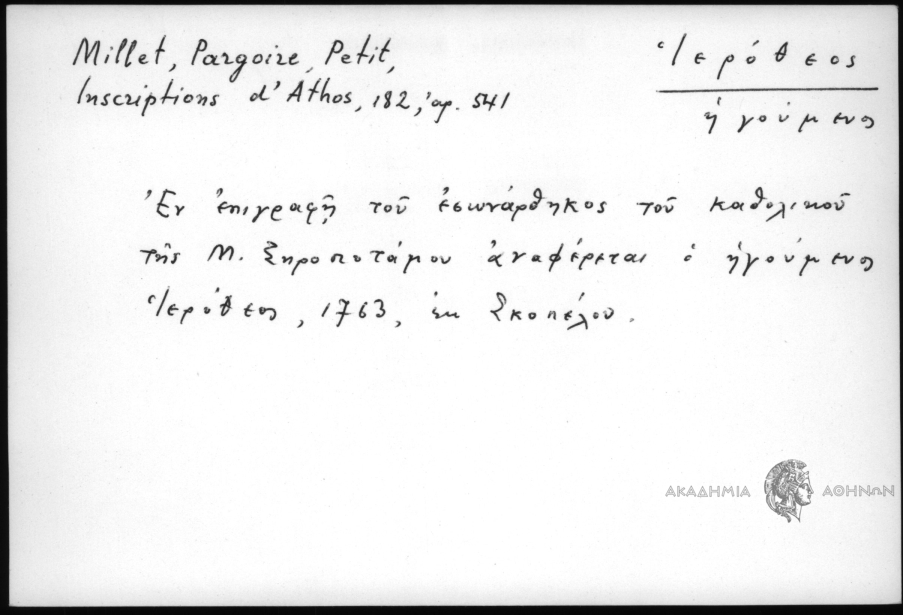 Millet, Pargoire, Petit,
Inscriptions d'Athos, 182, ἀρ. 541
Ἱερόθεος
ἡγούμενος
Ἐν ἐπιγραφῇ τοῦ ἐσωνάρθηκος τοῦ καθολικοῦ
τῆς Μ. Ξηροποτάμου ἀναφέρεται ὁ ἡγούμενος
Ἱερόθεος, 1763, ἐκ Σκοπέλου.
ΑΚΑΔΗΜΙΑ ΑΘΗΝΩΝ